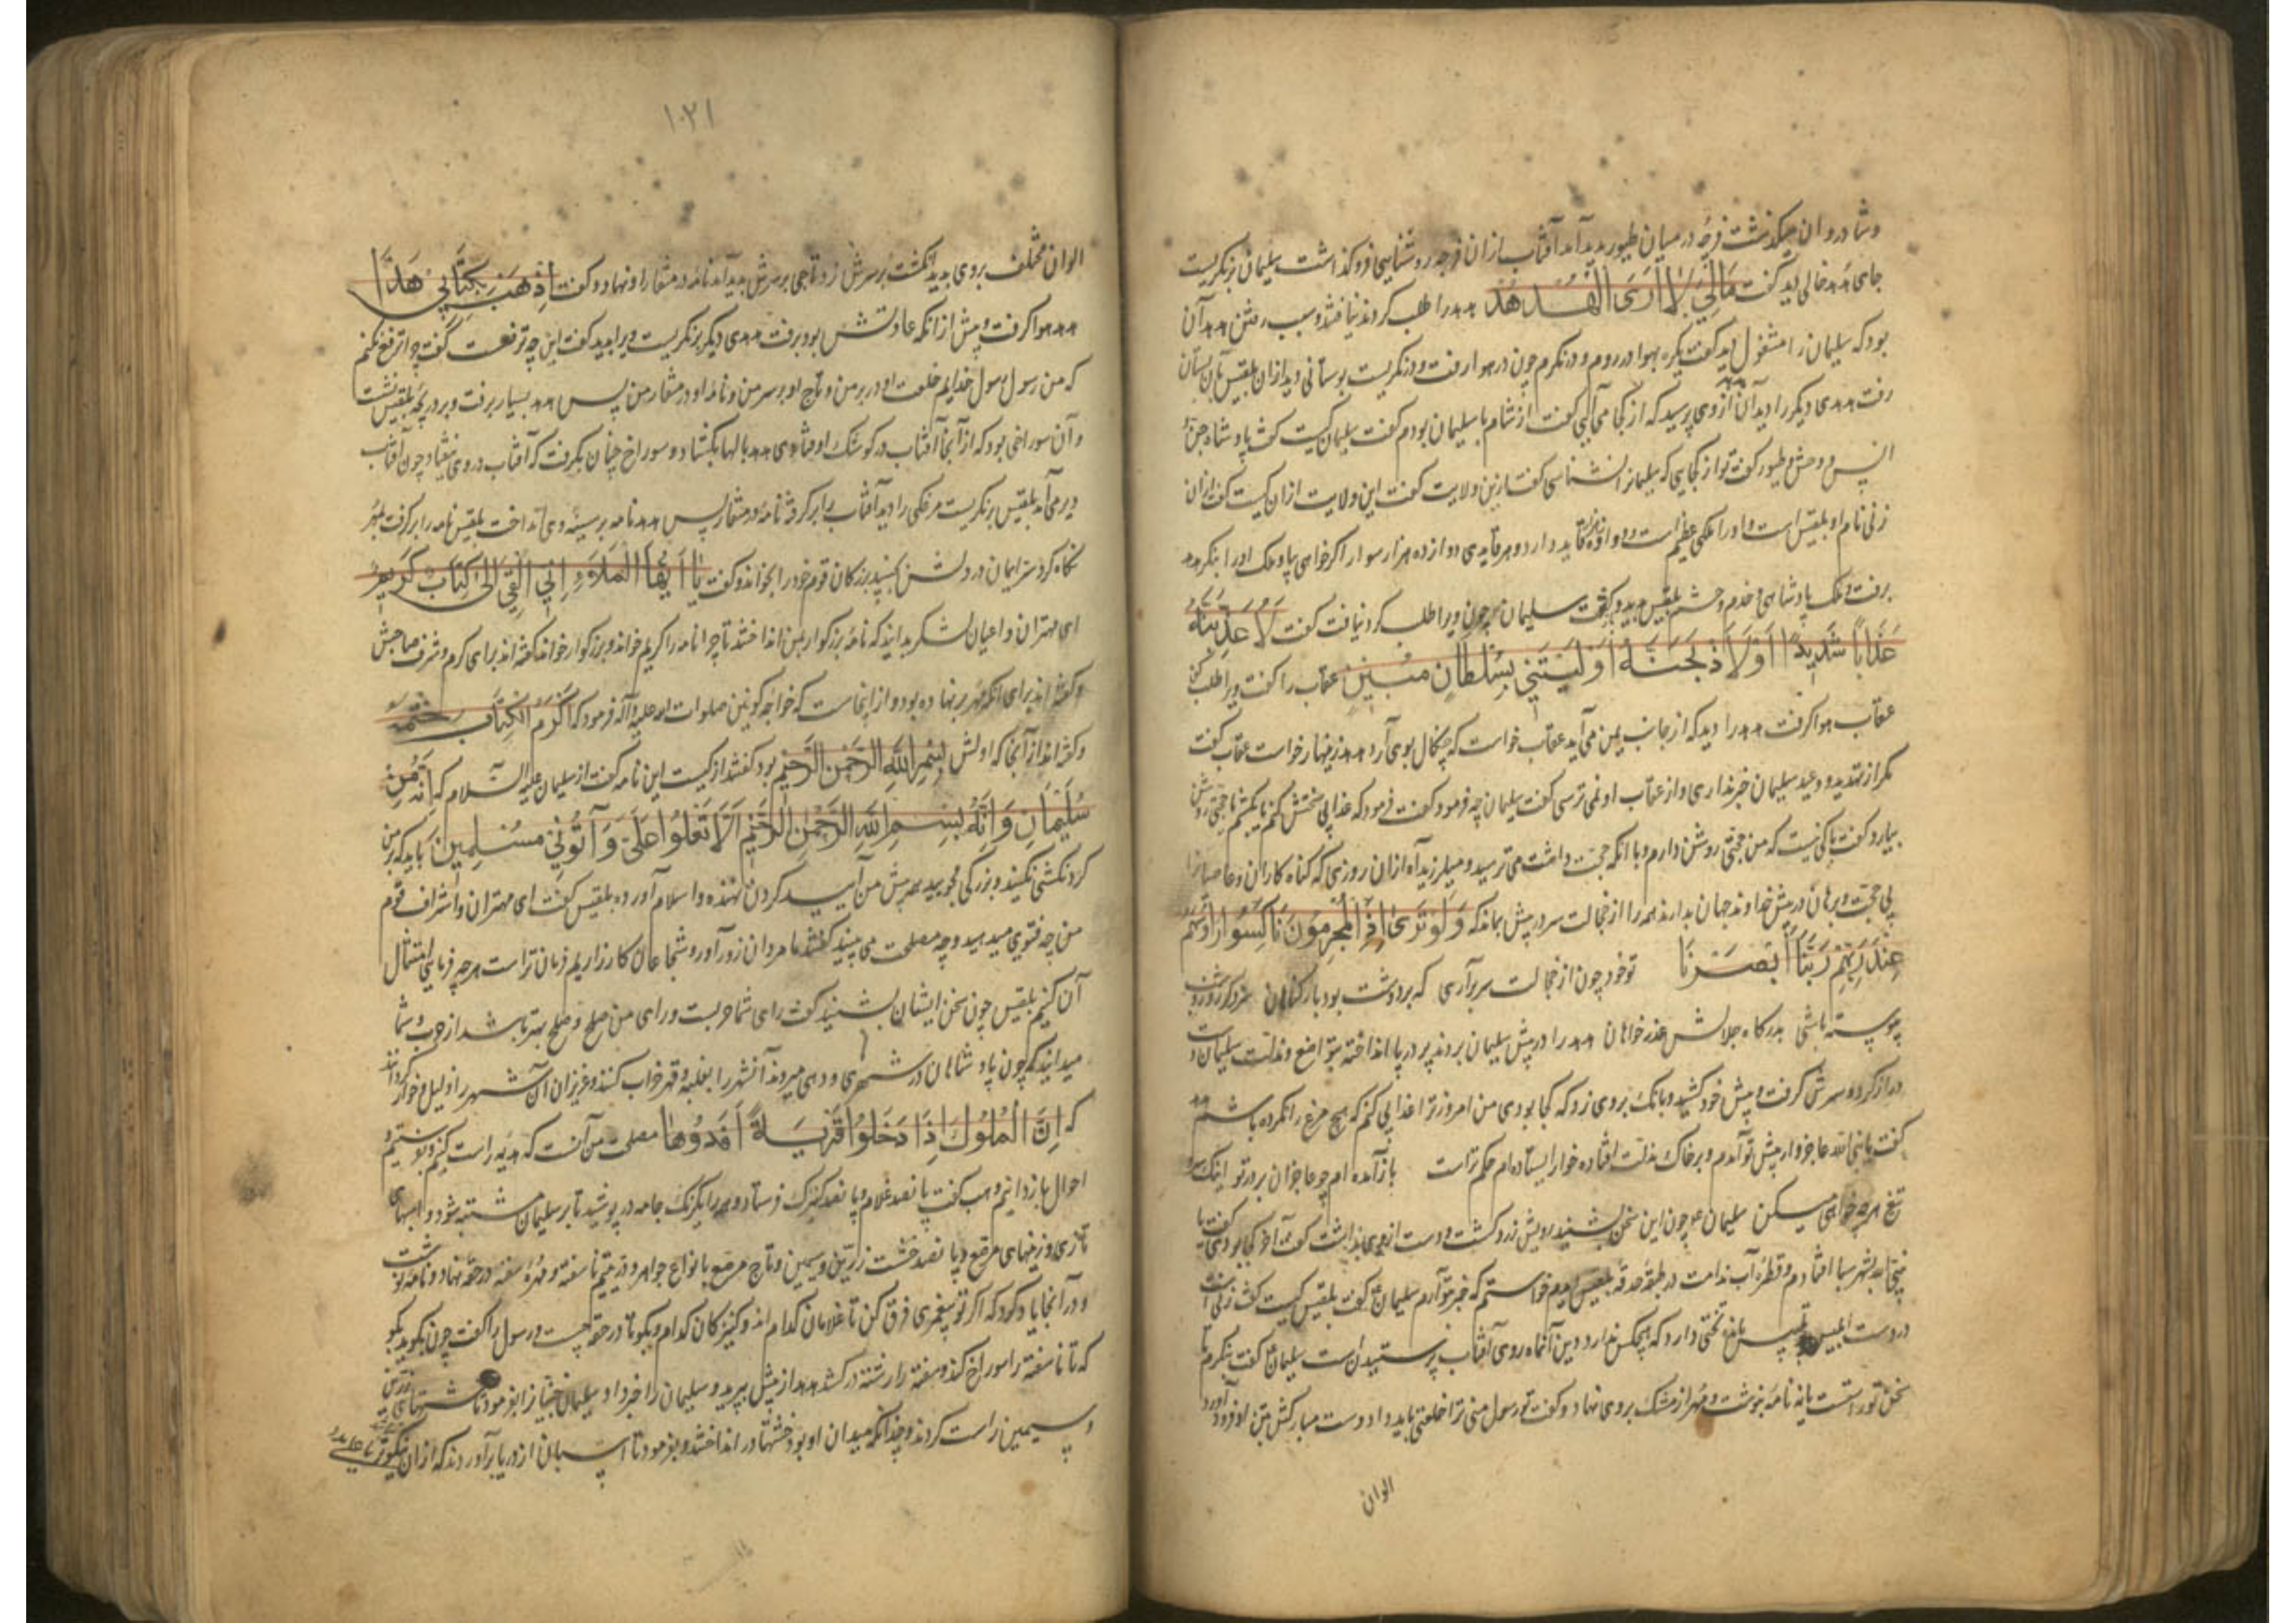 و شادروان میگذشت فرجه در میان طیور پدید آمد آفتاب ازان فرجه روشنایی فرو گذاشت سلیمان بنگریست
جای هدهد خالی دید گفت مَالِيَ لَا اَرَى الْهُدْهُدَ هدهد را طلب کردند نیافتند و سبب رفتن هدهد آن
بود که سلیمان را مشغول دید گفت یکره بهوا در روم و درنگرم چون در هوا رفت و درنگریست بوستانی دید ازان بلقیس بآن بستان
رفت هدهدی دیگر را دید آن هدهد ازوی پرسید که از کجا می آیی گفت از شام با سلیمان بودم گفت سلیمان کیست گفت پادشاه جن و
انس و وحش و طیور گفت تو از کجایی که سلیمانرا نشناسی گفت ازین ولایت گفت این ولایت ازان کیست گفت ازان
زنی نام او بلقیس است و او را ملکی عظیم است و دوازده هزار قاید دارد و هر قایدی دوازده هزار سوار اگر خواهی بیا و ملک او را بنگر هدهد
برفت و ملک پادشاهی و خدم و حشم بلقیس بدید و بگشت سلیمان چون ویرا طلب کرد نیافت گفت لَاُعَذِّبَنَّهُ
عَذَاباً شَدِيداً اَوْ لَاَذْبَحَنَّهُ اَوْ لَيَأْتِيَنِّي بِسُلْطَانٍ مُبِينٍ عقاب را گفت ویرا طلب کن
عقاب هوا گرفت هدهد را دید که از جانب یمن می آید عقاب خواست که چنگال بوی آرد هدهد زینهار خواست عقاب گفت
مگر از تهدید و وعید سلیمان خبر نداری و از عقاب او نمی ترسی گفت سلیمان چه فرمود گفت فرمود که عذابی سختش کنم یا بکشم یا حجتی روشن
بیارد گفت باکی نیست که من حجتی روشن دارم و با آنکه حجت داشت می ترسید و میلرزید آه ازان روزی که گناه کاران و عاصیانرا
بی حجت و برهان در پیش خداوند جهان بدارند همه را از خجالت سر در پیش بماند که وَلَوْ تَرَى اِذِ الْمُجْرِمُونَ نَاكِسُوا رُؤُسِهِمْ
عِنْدَ رَبِّهِمْ رَبَّنَا اَبْصَرْنَا تو خود چون از خجالت سر برآری که بر دوشت بود بار گناهان سزد گر روز و شب
پیوسته باشی بدرگاه جلالش عذر خواهان هدهد را در پیش سلیمان بردند پر در پا انداخته بتواضع و مذلت سلیمان دست
دراز کرد و سرش گرفت و پیش خود کشید و بانگ بروی زد که کجا بودی من امروز ترا عذابی کنم که هیچ مرغ را نکرده باشم هدهد
گفت یا نبی الله عاجزوار پیش تو آمدم و بر خاک مذلت افتاده خوار ایستاده ام حکم تراست باز آمده ام چو عاجزان بر در تو اینک سر و
تیغ هر چه خواهی میکن سلیمان چون این سخن بشنید رویش زرد گشت و دست از وی بداشت گفت آخر کجا بودی گفت یا
نبی الله بشهر سبا افتادم و قطره آب ندامت در طبقه حدقه بلقیس دیدم خواستم که خبر بتو آرم سلیمان گفت بلقیس کیست گفت زنی است
در دست ابلیس تختی دارد که هیچکس ندارد و دین آنها روی آفتاب پرستیدن است سلیمان گفت بنگرم تا
سخن تو راست یا نه نامه بنوشت و مهر از مشک بروی نهاد و گفت تو رسول منی ترا خلعتی باید داد دست مبارکش بتن او فرود آورد
الوان
۱۰۲۱
الوان مختلف بروی پدید آمد انگشت بر سرش زد تاجی بر سرش پدید آمد نامه در منقار او نهاد و گفت اِذْهَبْ بِكِتَابِي هَذَا
هدهد هوا گرفت و پیش ازانکه عادتش بود برفت هدهدی دیگر بنگریست ویرا بدید گفت این چه ترفعست گفت چرا ترفع نکنم
که من رسول رسول خدایم خلعت او در بر من و تاج او بر سر من و نامه او در منقار من پس هدهد بسیار برفت و بر دریچه بلقیس نشست
و آن سوراخی بود که از آنجا آفتاب در کوشک او فتادی هدهد بالها بگشاد و سوراخ چنان بگرفت که آفتاب در وی نیفتاد چون آفتاب
دیر می آمد بلقیس بنگریست مرغکی را دید آفتاب را بر گرفته نامه در منقار پس هدهد نامه بر سینه وی انداخت بلقیس نامه را برگرفت بمهر
نگاه کرد سر ایمان در دلش بجنبید بزرگان قوم خود را بخواند و گفت يَا اَيُّهَا الْمَلَؤُا اِنِّي اُلْقِيَ اِلَيَّ كِتَابٌ كَرِيمٌ
ای مهتران و اعیان لشکر بدانید که نامه بزرگوار بمن انداختند تا چرا نامه را کریم خواند و بزرگوار خواند گفته اند برای کرم و شرف صاحبش
و گفته اند برای آنکه مهر بر نهاده بود و از اینجاست که خواجه کونین صلوات الله علیه و آله فرمود که اَكْرَمُ الْكِتَابِ خَتْمُهُ
و گفته اند از آنجا که اولش بِسْمِ اللَّهِ الرَّحْمَنِ الرَّحِيمِ بود گفتند از کیست این نامه گفت از سلیمان علیه السلام که اِنَّهُ مِنْ
سُلَيْمَانَ وَاِنَّهُ بِسْمِ اللَّهِ الرَّحْمَنِ الرَّحِيمِ اَلَّا تَعْلُوا عَلَيَّ وَأْتُونِي مُسْلِمِينَ باید که بر من
گردنکشی نکنید و بزرگی مجویید همه پیش من آیید گردن نهنده و اسلام آورده بلقیس گفت ای مهتران و اشراف قوم
من چه فتوی میدهید و چه مصلحت می بینید گفتند ما مردان زورآور و شجاعان کارزاریم فرمان تراست هر چه فرمایی امتثال
آن کنیم بلقیس چون سخن ایشان بشنید گفت رای شما حربست و رای من صلح و صلح بهتر باشد از حرب و شما
میدانید که چون پادشاهان در شهری و دهی میروند آنشهر را بغلبه و قهر خراب کنند و عزیزان آن شهر را ذلیل و خوار گردانند
که اِنَّ الْمُلُوكَ اِذَا دَخَلُوا قَرْيَةً اَفْسَدُوهَا مصلحت من آنست که هدیه راست کنیم و بفرستیم و
احوال باز دانیم وهب گفت پانصد غلام و پانصد کنیزک فرستاد و همه را یکرنگ جامه در پوشید تا بر سلیمان مشتبه شود و اسبهای
تازی و زینهای مرصع و پانصد خشت زرین و سیمین و تاج مرصع بانواع جواهر و در یتیم ناسفته و مهره سفته در حقه نهاد و نامه نوشت
و در آنجا یاد کرد که اگر تو پیغمبری فرق کن تا غلامان کدام اند و کنیزکان کدام و بگو تا در حقه چیست و رسول را گفت چون بگوید بگو
که تا ناسفته را سوراخ کند و سفته را رشته در کشد هدهد از پیش بپرید و سلیمان را خبر داد سلیمان جنیانرا بفرمود تا خشتهای زرین
و سیمین راست کردند و چندانکه میدان او بود خشتها در انداختند و بفرمود تا اسبان از دریا برآوردند که ازان نیکوتر نباشد